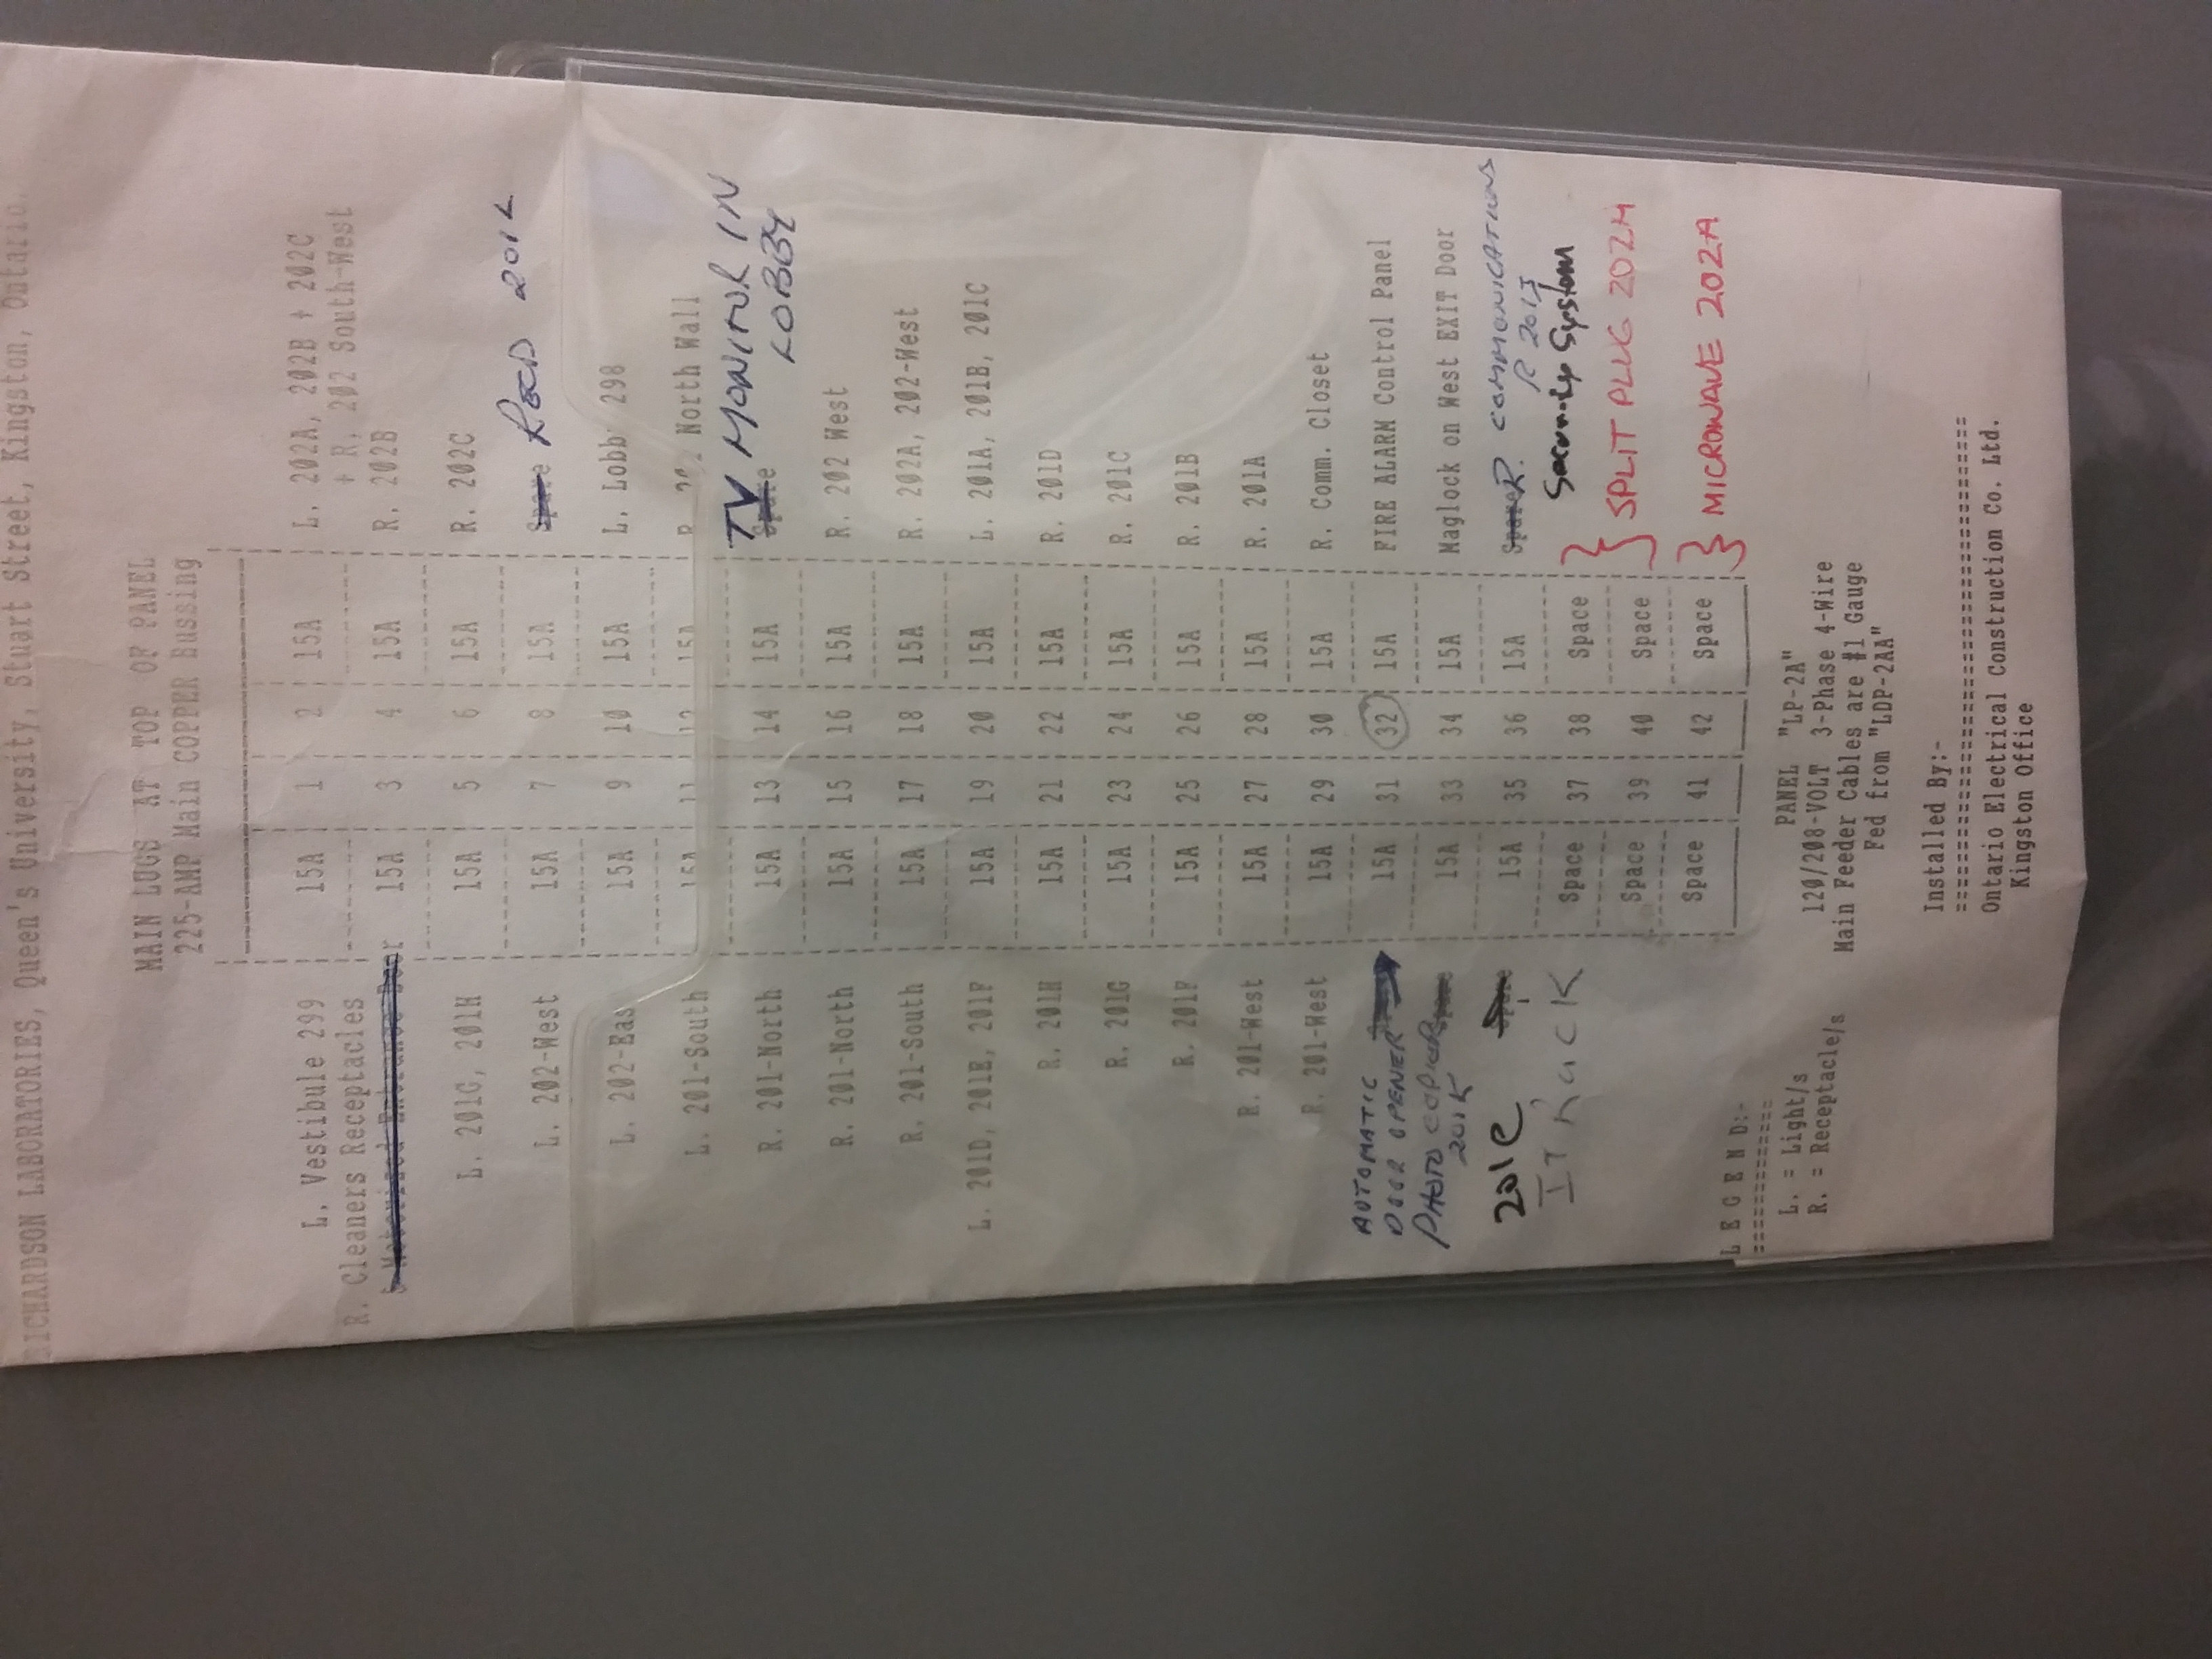 RICHARDSON LABORATORIES, Queen's University, Stuart Street, Kingston, Ontario.
MAIN LUGS AT TOP OF PANEL
225-AMP Main COPPER Bussing
L. Vestibule 299 15A 1 2 15A L. 202A, 202B + 202C
+ R. 202 South-West
R. Cleaners Receptacles 15A 3 4 15A R. 202B
L. 201G, 201H 15A 5 6 15A R. 202C
L. 202-West 15A 7 8 15A Spare 201L
L. 202-Eas 15A 9 10 15A L. Lobb 298
L. 201-South 15A 11 12 15A R. 202 North Wall
R. 201-North 15A 13 14 15A Spare TV MONITOR IN
LOBBY
R. 201-North 15A 15 16 15A R. 202 West
R. 201-South 15A 17 18 15A R. 202A, 202-West
L. 201D, 201E, 201F 15A 19 20 15A L. 201A, 201B, 201C
R. 201H 15A 21 22 15A R. 201D
R. 201G 15A 23 24 15A R. 201C
R. 201F 15A 25 26 15A R. 201B
R. 201-West 15A 27 28 15A R. 201A
R. 201-West 15A 29 30 15A R. Comm. Closet
AUTOMATIC
DOOR OPENER 15A 31 32 15A FIRE ALARM Control Panel
PHOTO COPIER Spare 15A 33 34 15A Maglock on West EXIT Door
201K
201E Spare 15A 35 36 15A Spare R. COMMUNICATIONS
R 201J
IT RACK
Security System
Space 37 38 Space
Space 39 40 Space SPLIT PLUG 202A
Space 41 42 Space MICROWAVE 202A
LEGEND:-
L. = Light/s
R. = Receptacle/s
PANEL "LP-2A"
120/208-VOLT 3-Phase 4-Wire
Main Feeder Cables are #1 Gauge
Fed from "LDP-2AA"
Installed By:-
Ontario Electrical Construction Co. Ltd.
Kingston Office